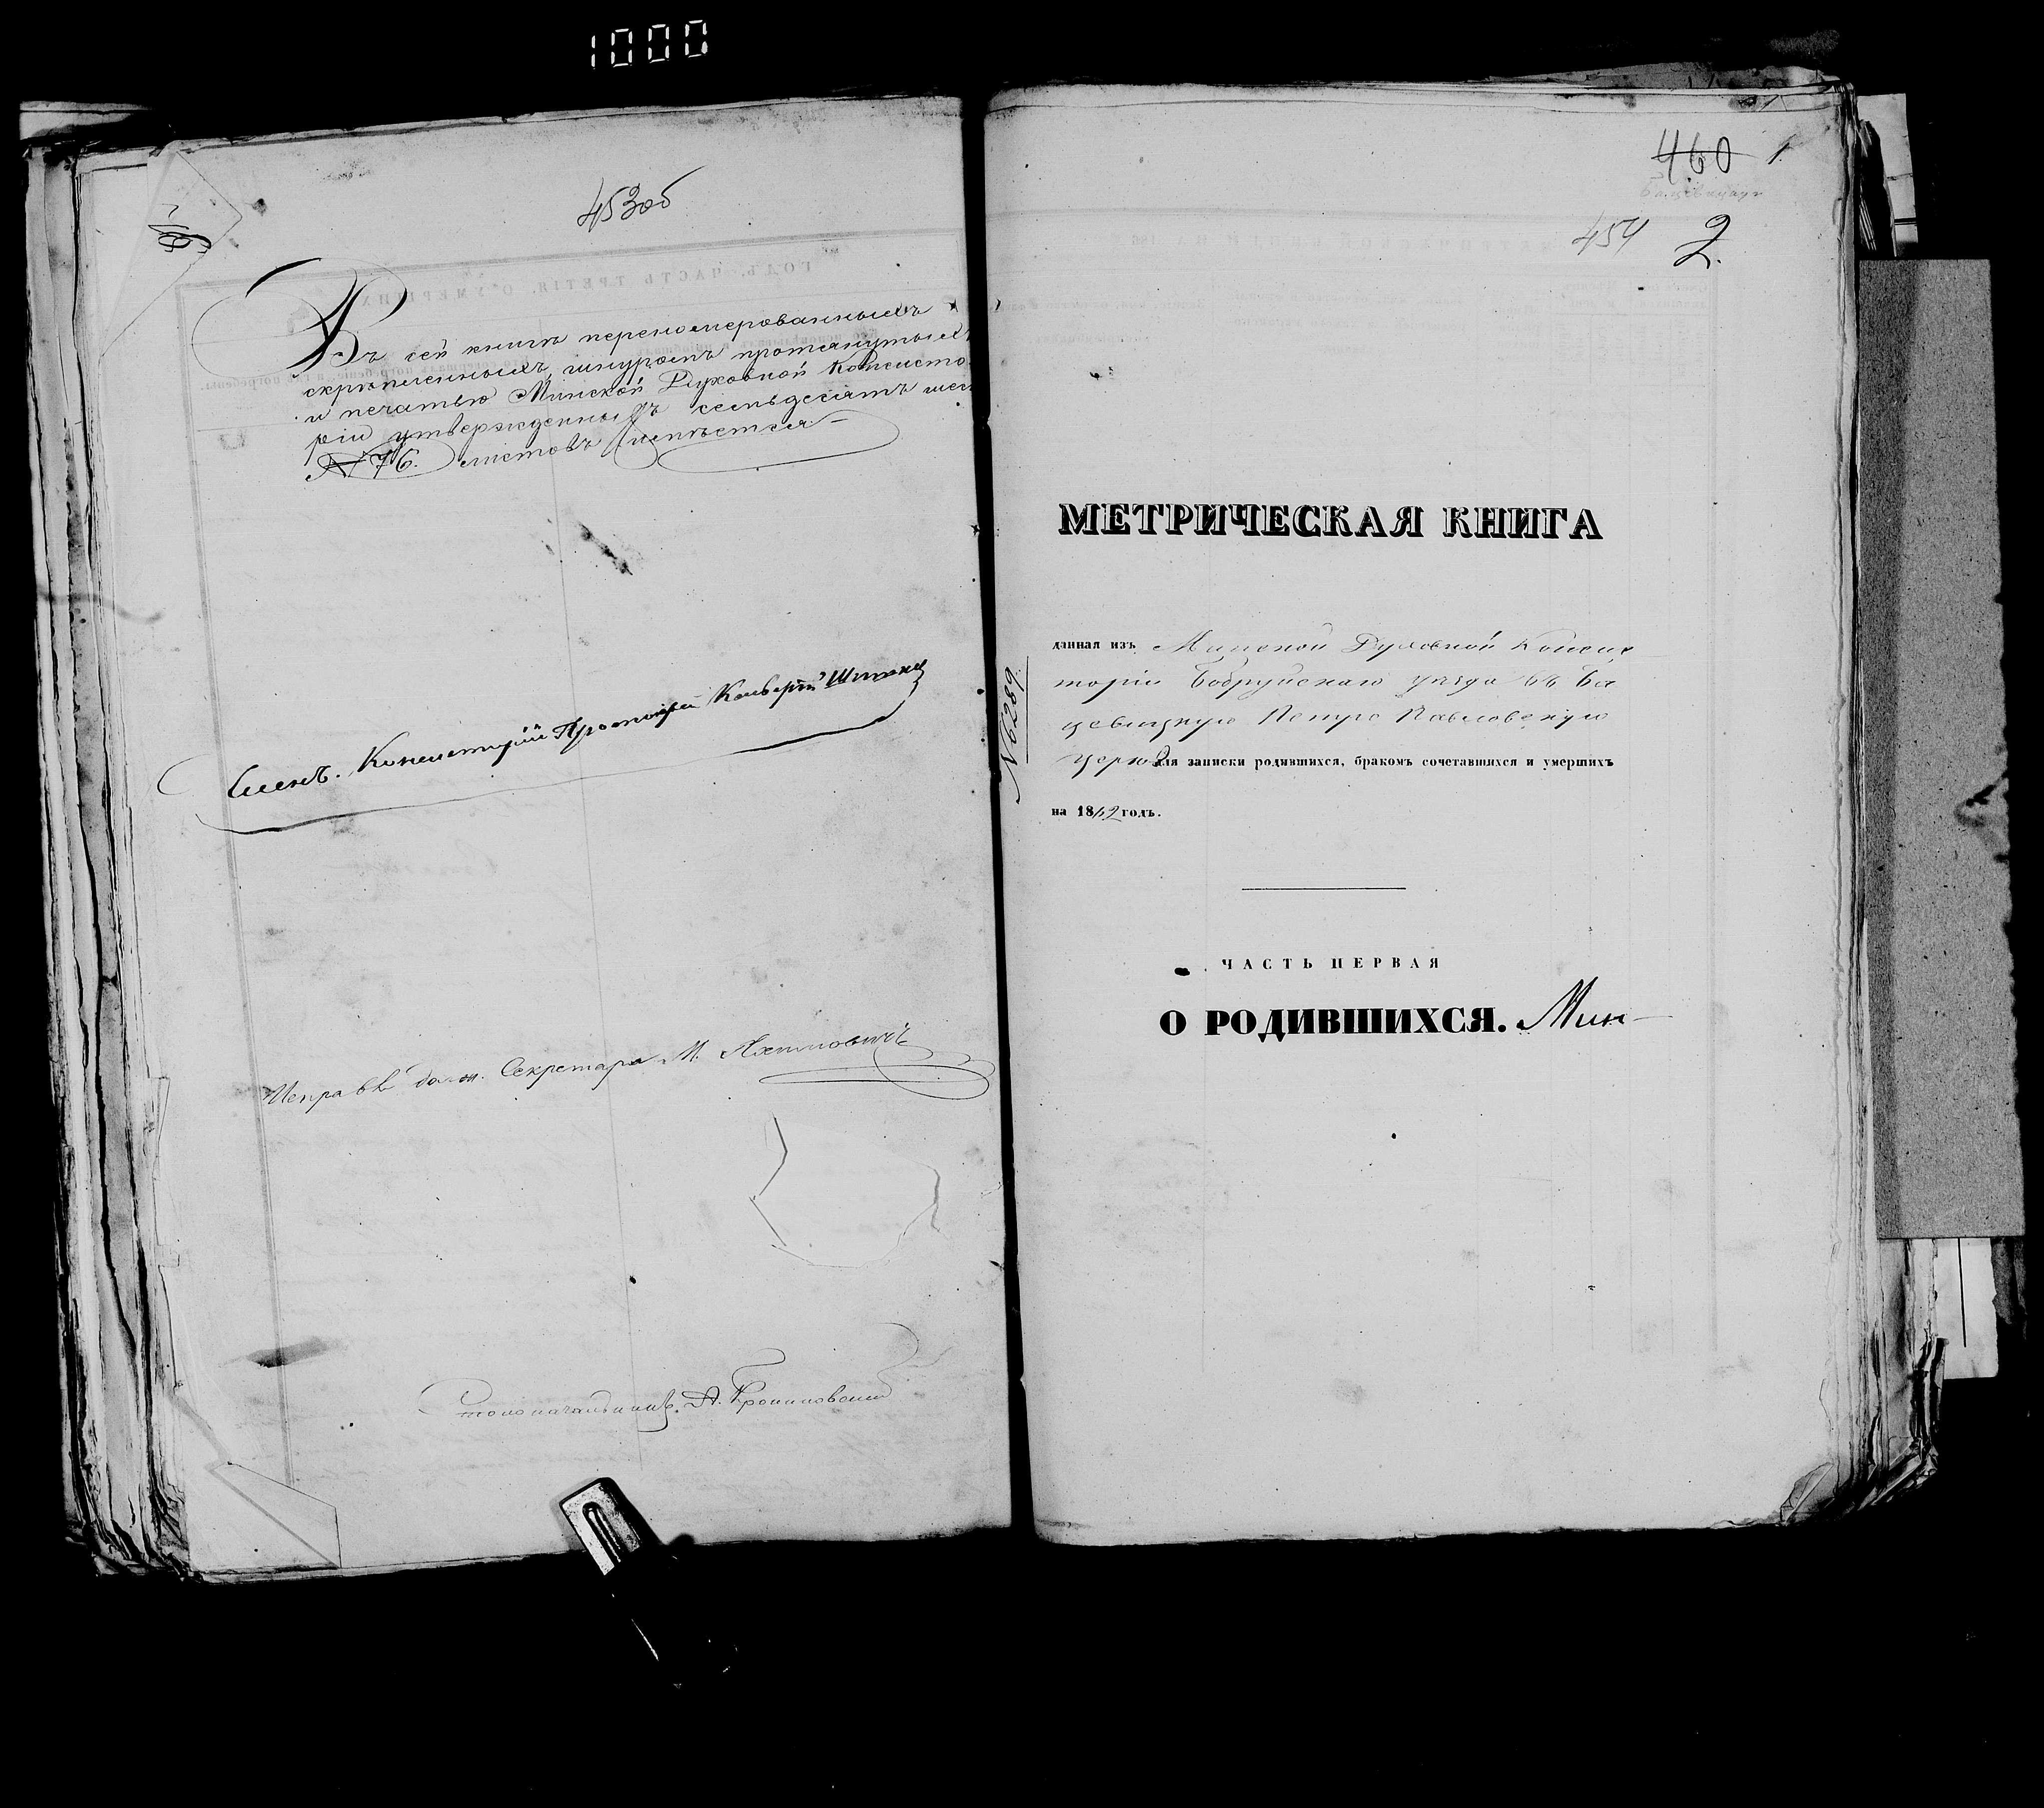 1000
453об
Въ сей книгѣ перенумерованныхъ
скрѣпленныхъ, шнуромъ протянутыхъ
и печатью Минской Духовной Консисто
ріи утвержденныхъ семьдесятъ шес
N 76. листовъ имѣется
Членъ Консисторіи Протоіерей
Исправ. долж. Секретаря М.
Столоначальникъ А.
460 1.
454 2.
МЕТРИЧЕСКАЯ КНИГА
данная изъ Минской Духовной Консис
торіи Бобруйскаго уѣзда въ Ба
цевицкую Петро Павловскую
церковь для записки родившихся, бракомъ сочетавшихся и умершихъ
на 1862 годъ.
N 6289.
ЧАСТЬ ПЕРВАЯ
О РОДИВШИХСЯ. Мин